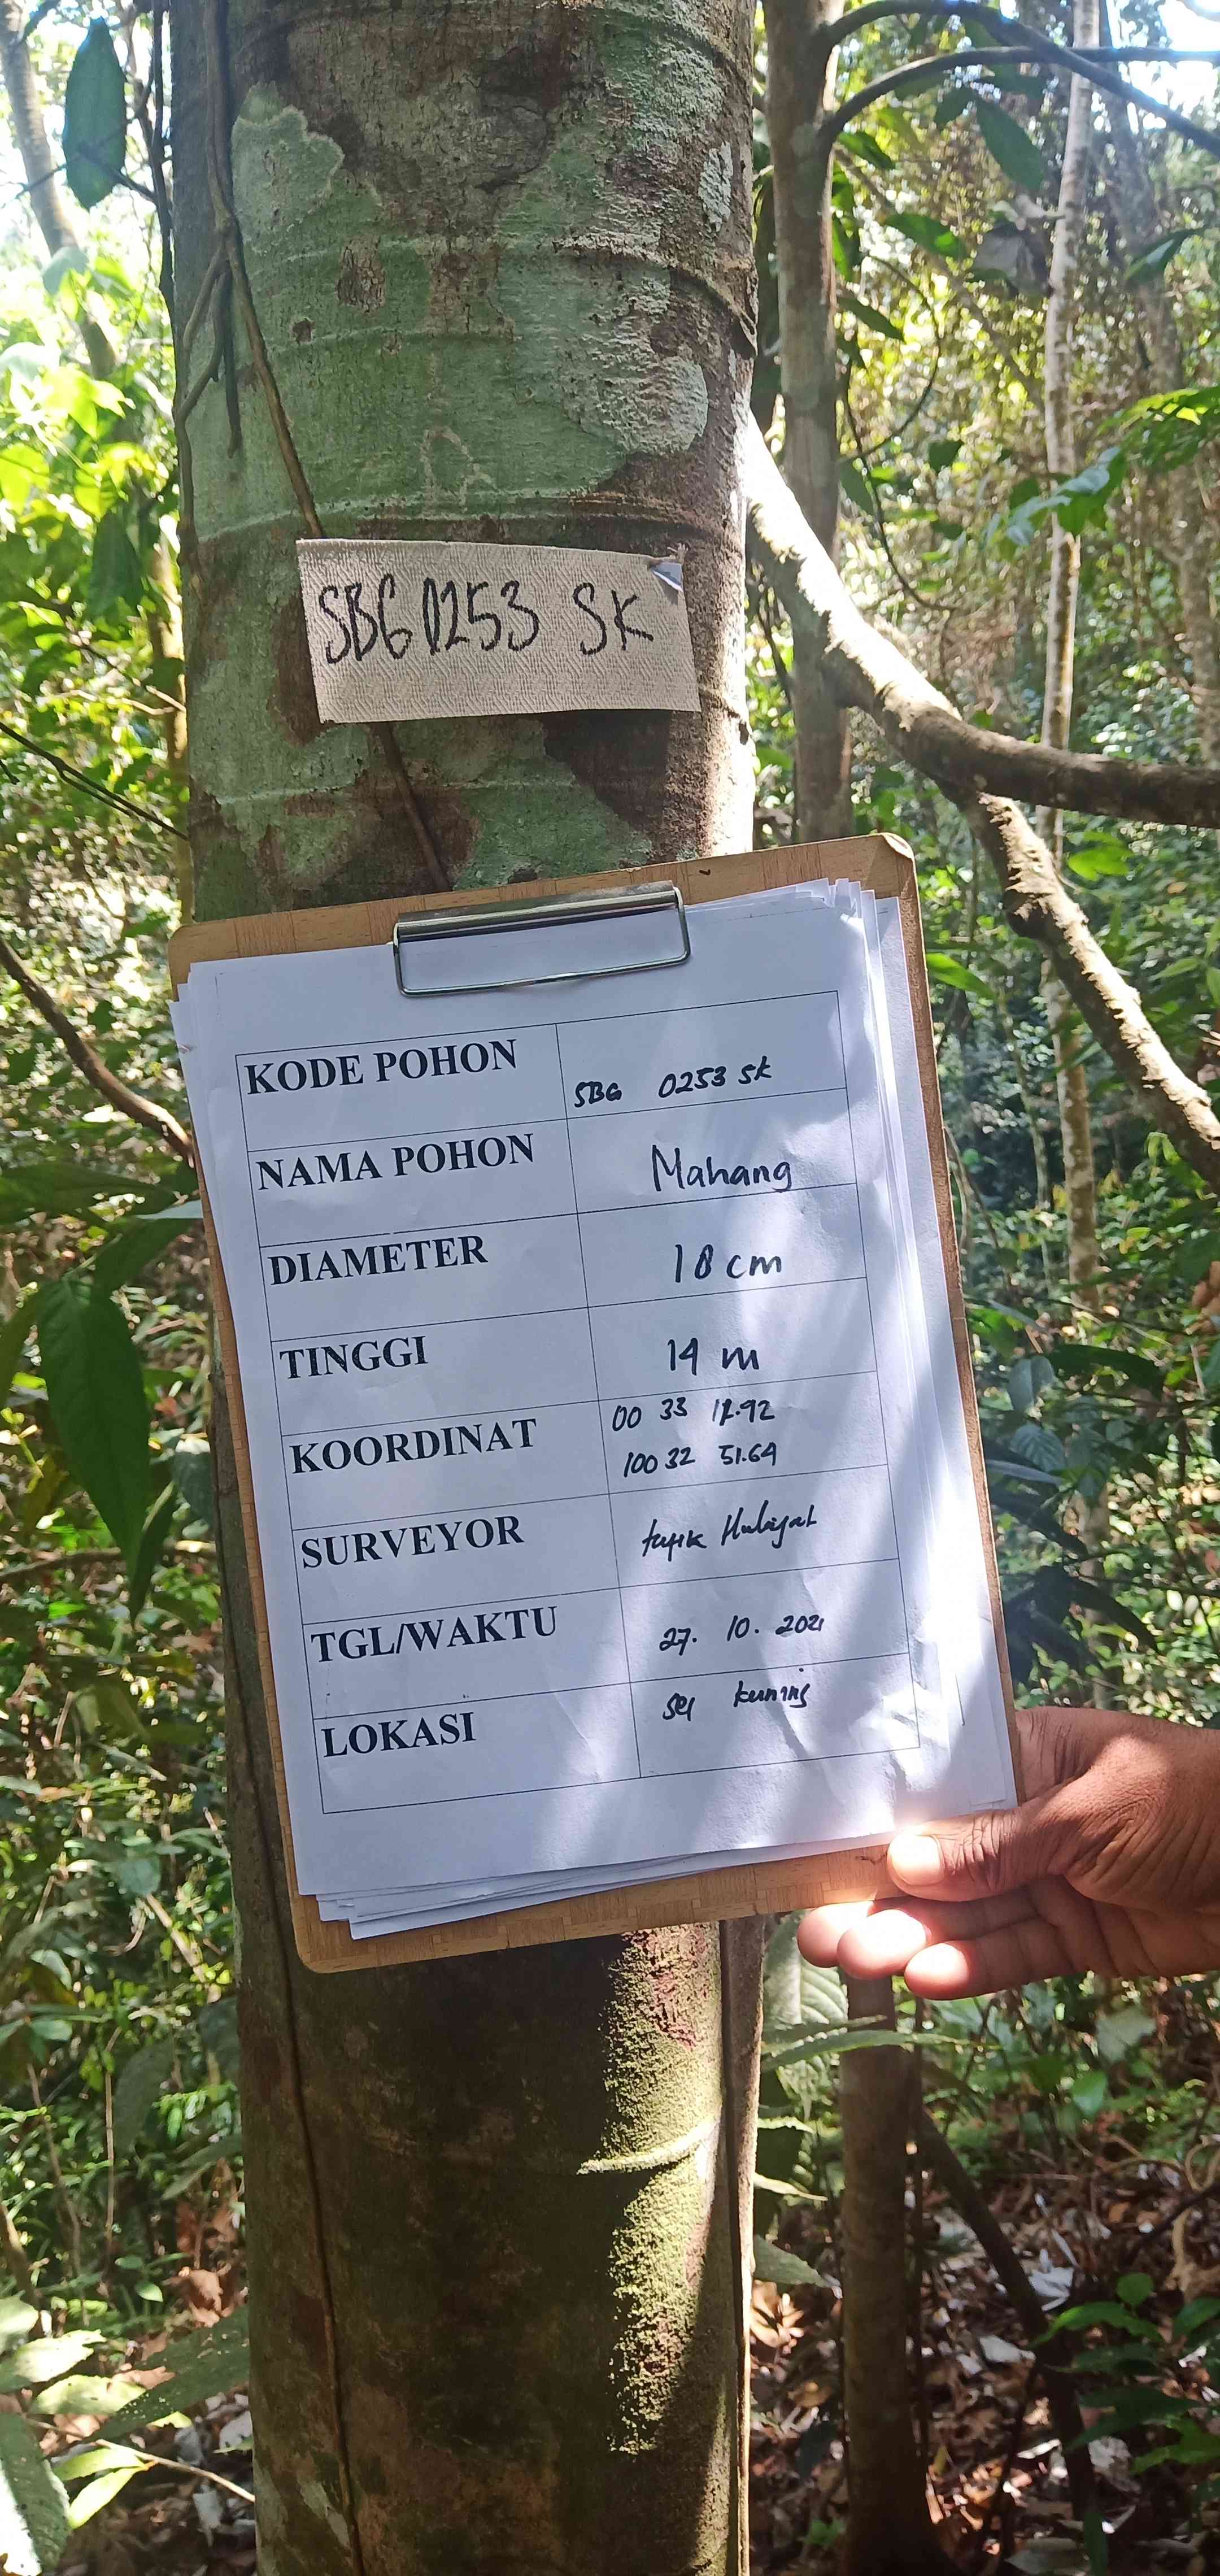 SBG 0253 SK
KODE POHON
SBG 0253 SK
NAMA POHON
Mahang
DIAMETER
18 cm
TINGGI
14 m
KOORDINAT
00 33
100 32 51.64
SURVEYOR
TGL/WAKTU
27. 10. 2021
LOKASI
kuning